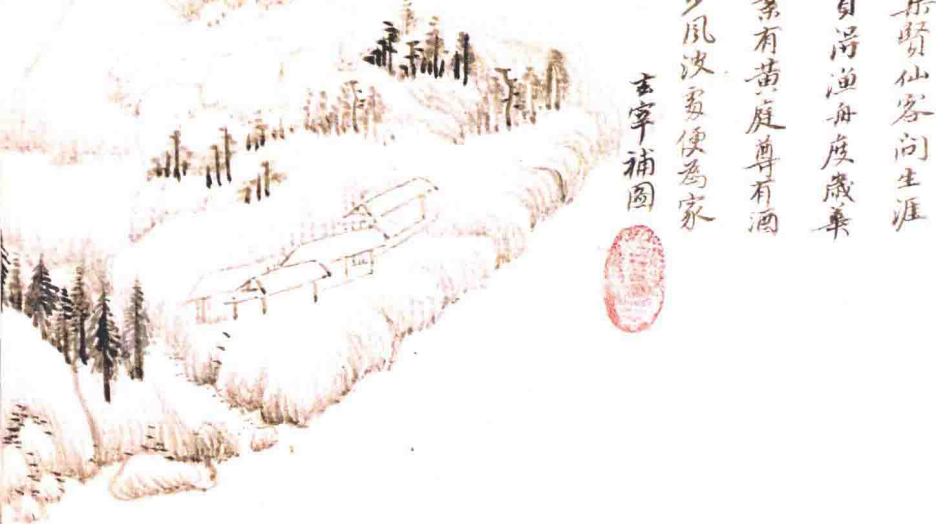 集賢仙客问生涯
買淂漁舟度歲華
案有黄庭尊有酒
少風波處便爲家
玄宰補圖